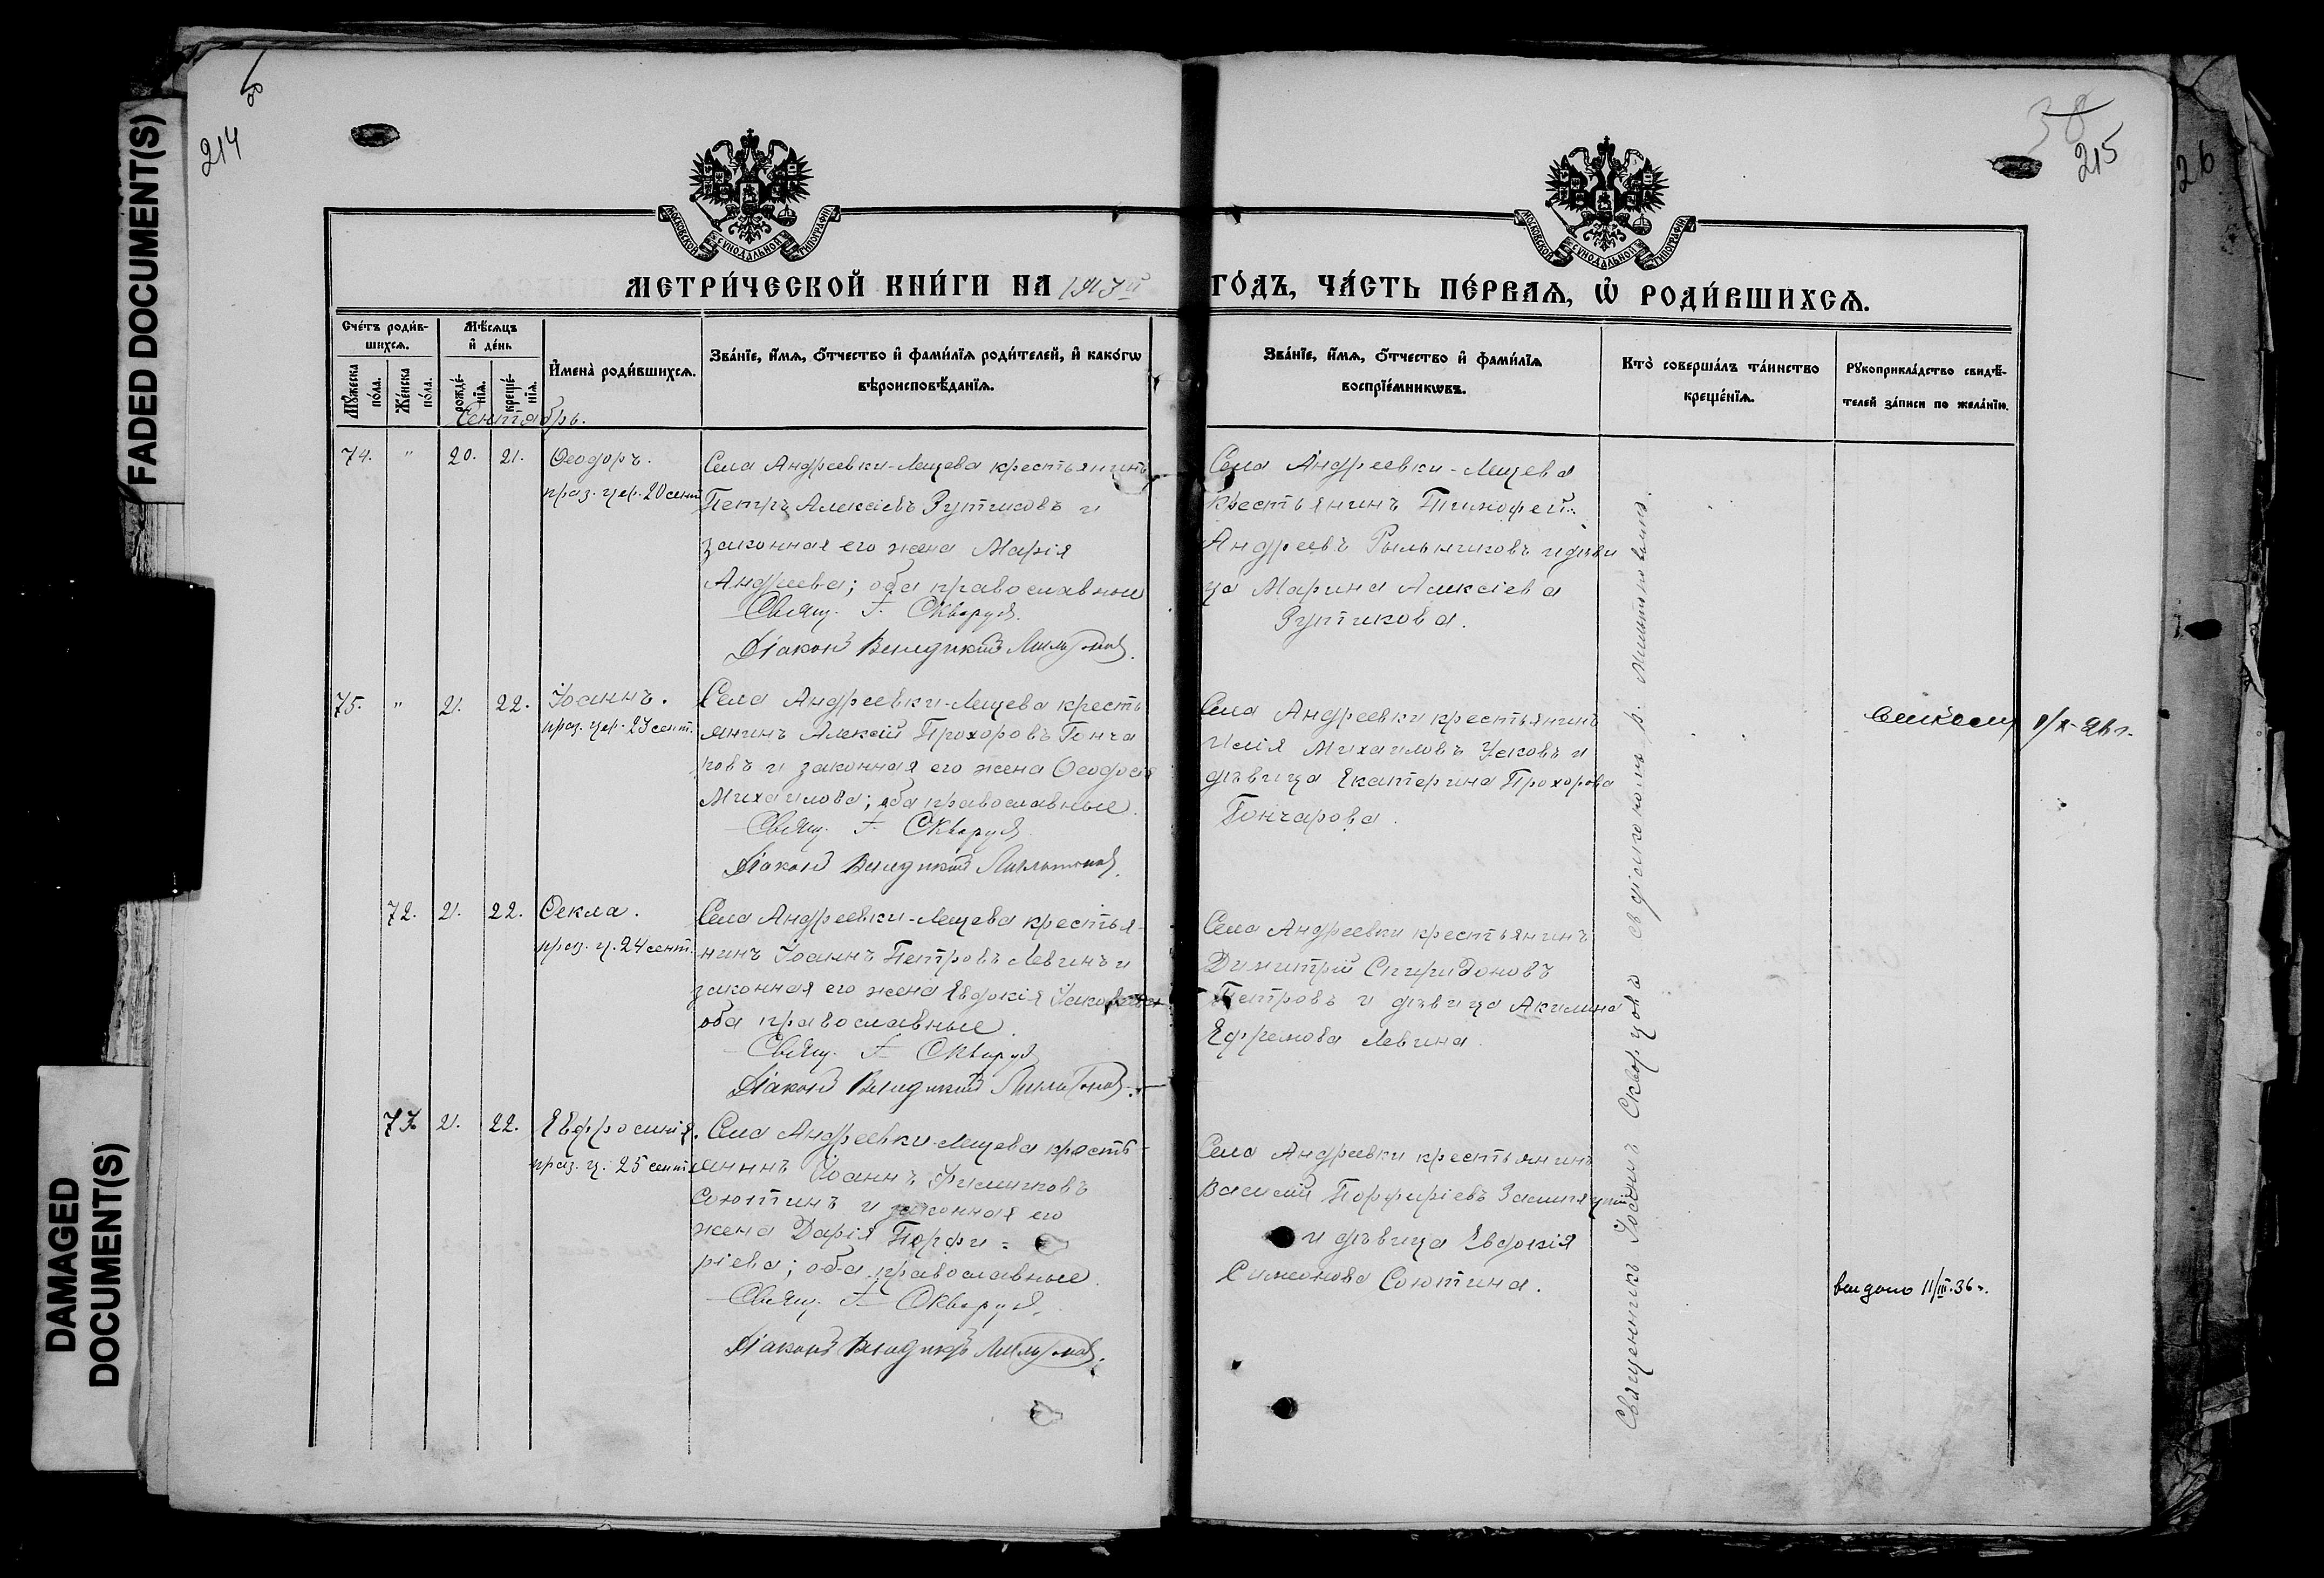 FADED DOCUMENT(S)
DAMAGED
DOCUMENT(S)
214
38
215
26
МОСКОВСКОЙ СѴНОДАЛЬНОЙ ТИПОГРАФІИ
МОСКОВСКОЙ СѴНОДАЛЬНОЙ ТИПОГРАФІИ
МЕТРИ́ЧЕСКОЙ КНИ́ГИ НА 1913й ГО́ДЪ, ЧА́СТЬ ПЕ́РВАѦ, Ѡ҆ РОДИ́ВШИХСѦ.
Сче́тъ роди́в-
шихсѧ.
Мꙋ́жеска
по́ла.
Же́нска
по́ла.
Мѣ́сѧцъ
и҆ де́нь
рожде́-
нїѧ.
креще́-
нїѧ.
И҆мена̀ роди́вшихсѧ.
Зва́нїе, и҆́мѧ, ѻ҆́тчество и҆ фами́лїѧ роди́телей, и҆ како́гѡ
вѣроисповѣ́данїѧ.
Зва́нїе, и҆́мѧ, ѻ҆́тчество и҆ фами́лїѧ
воспрїе́мникѡвъ.
Кто̀ соверша́лъ та́инство
креще́нїѧ.
Рꙋкоприкла́дство свидѣ́-
телей за́писи по жела́нїю.
Сентябрь.
74. " 20. 21. Ѳеодоръ.
праз. цер. 20 сент.
Села Андреевки-Лещева крестьянинъ
Петръ Алексіевъ Зутиковъ и
законная его жена Марія
Андреева; оба православные
Свящ. І. Скворцов.
Діаконъ Венедиктъ Мильтонов.
Села Андреевки-Лещева
крестьянинъ Тимофей
Андреевъ Рыльниковъ и дѣви
ца Марина Алексіева
Зутикова.
75. " 21. 22. Іоаннъ.
праз. цер. 23 сент.
Села Андреевки-Лещева кресть
янинъ Алексій Прохоровъ Гонча
ровъ и законная его жена Ѳеодосія
Михаилова; оба православные.
Свящ. І. Скворцов
Діаконъ Венедиктъ Мильтонов.
Села Андреевки крестьянинъ
Илія Михаиловъ Усковъ и
дѣвица Екатерина Прохорова
Гончарова.
72. 21. 22. Ѳекла.
праз. ц. 24 сент.
Села Андреевки-Лещева крестья-
нинъ Іоаннъ Петровъ Левинъ и
законная его жена Евдокія Іаковлева
оба православные.
Свящ. І. Скворцов
Діаконъ Венедиктъ Мильтонов.
Села Андреевки крестьянинъ
Димитрій Спиридоновъ
Петровъ и дѣвица Акилина
Ефремова Левина.
73. 21. 22. Евфросинія.
праз. ц. 25 сент.
Села Андреевки-Лещева кресть-
янинъ Іоаннъ Филипповъ
Соютинъ и законная его
жена Дарія Порфи=
ріева; оба православные.
Свящ. І. Скворцов.
Діаконъ Венедиктъ Мильтонов.
Села Андреевки крестьянинъ
Василій Порфиріевъ
и дѣвица Евдокія
Симеонова Соютина.
Священникъ Іоаннъ Скворцовъ съ діакономъ В. Мильтоновымъ.
выдано 11/III.36 г.